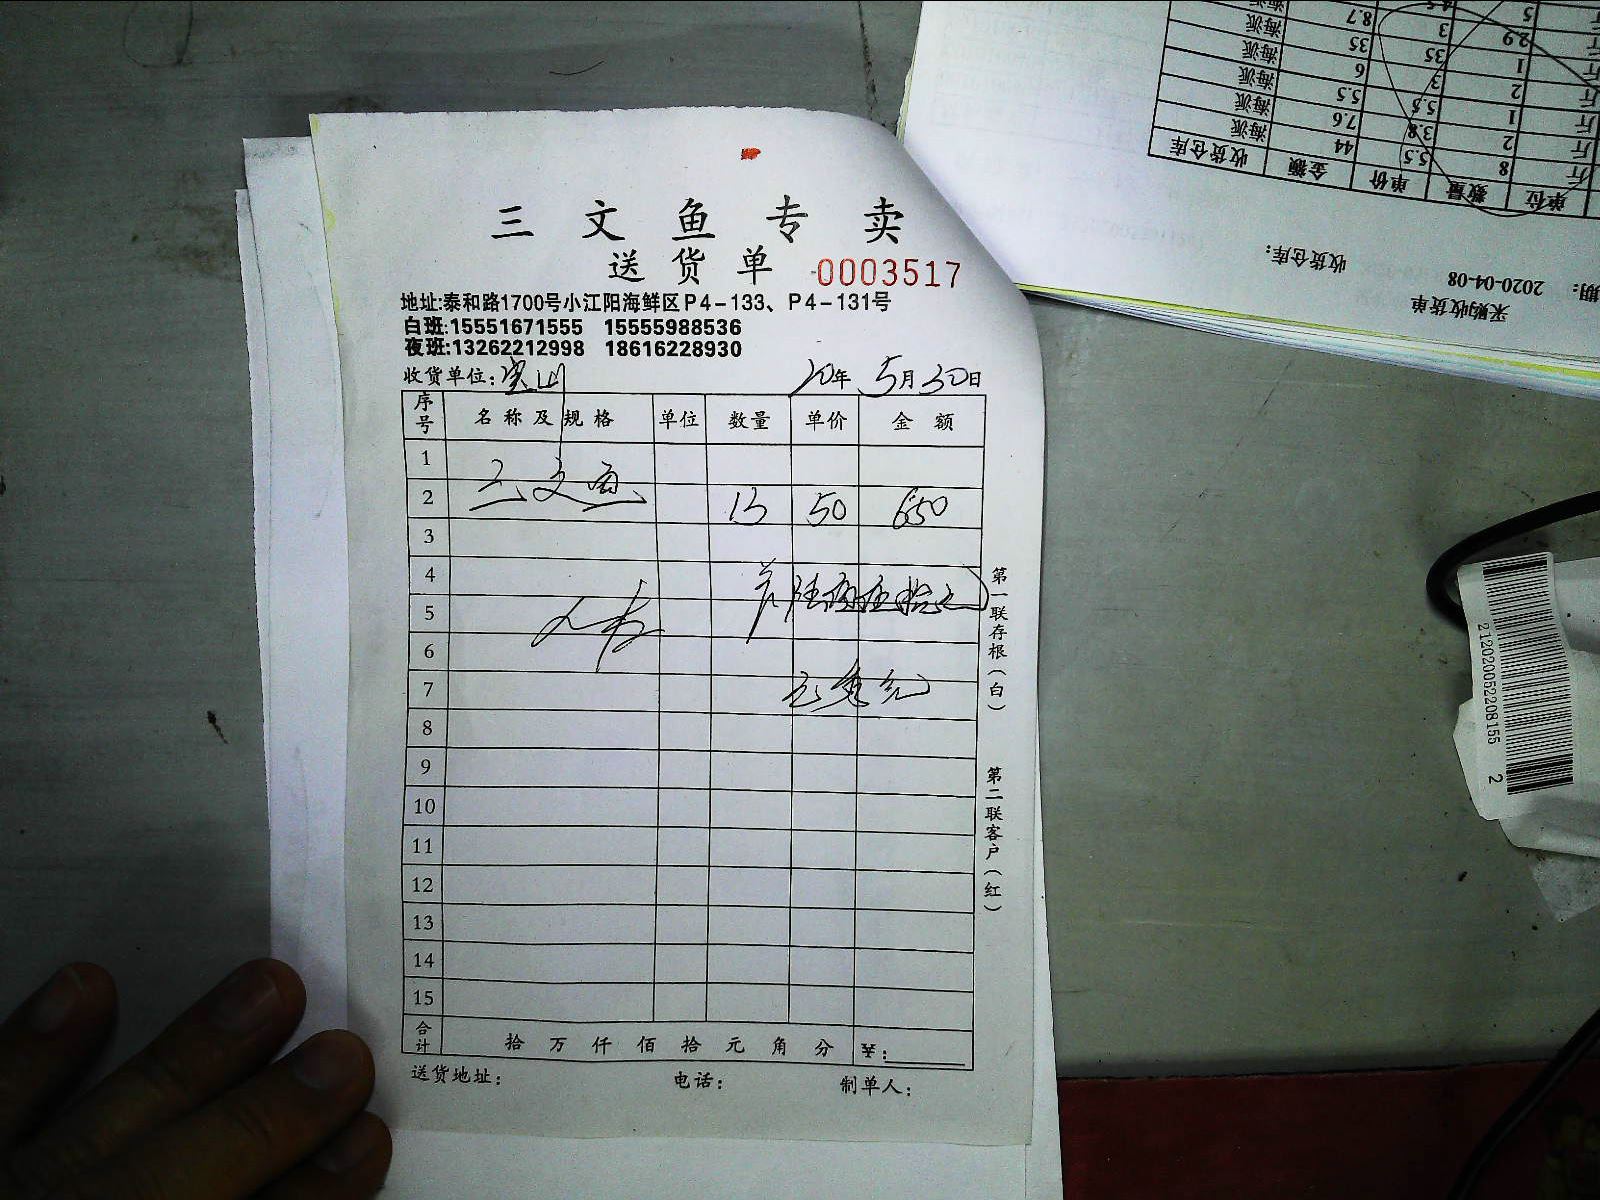 三文鱼专卖
送货单 0003517
地址:泰和路1700号小江阳海鲜区P4-133、P4-131号
白班:15551671555 15555988536
夜班:13262212998 18616228930
收货单位:宝山 20年 5月30日
序号 名称及规格 单位 数量 单价 金额
1
2 三文鱼 13 50 650
3
4
5 陆佰伍拾元
6
7
8
9
10
11
12
13
14
15
合计 拾 万 仟 佰 拾 元 角 分 ¥:
送货地址: 电话: 制单人:
第一联存根(白)
第二联客户(红)
采购收货单
2020-04-08
收货仓库:
单位 数量 单价 金额 收货仓库
斤 8 5.5 44 海派
斤 2 3.8 7.6 海派
斤 1 5.5 5.5 海派
斤 2 3 6 海派
斤 1 35 35 海派
斤 2.9 3 8.7 海派
212020052208155 2